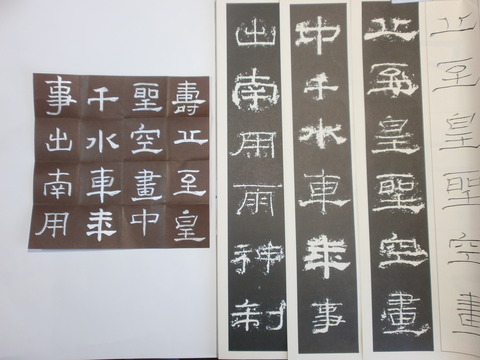 壽止至皇
聖空畫中
千水車
事出南用
止至皇聖空畫
止至皇聖空畫
中千水車事
出南用雨神制